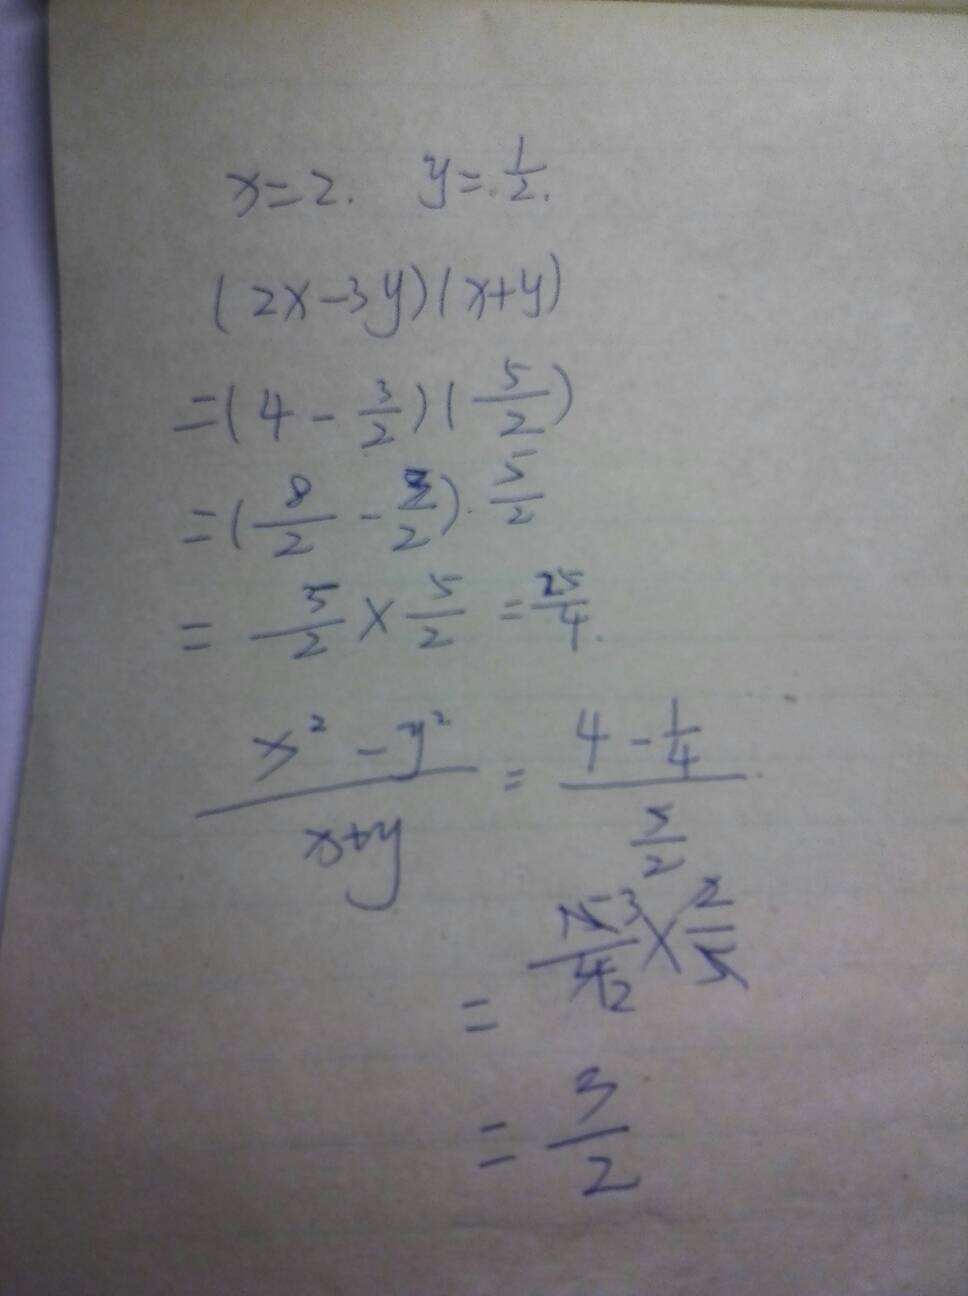 x=2. y=.1/2.
(2x-3y)(x+y)
=(4-3/2)(5/2)
=(8/2-3/2)·5/2
=5/2×5/2=25/4.
x²-y²/x+y=4-1/4/5/2
=15 3/4 2×2/5
=3/2